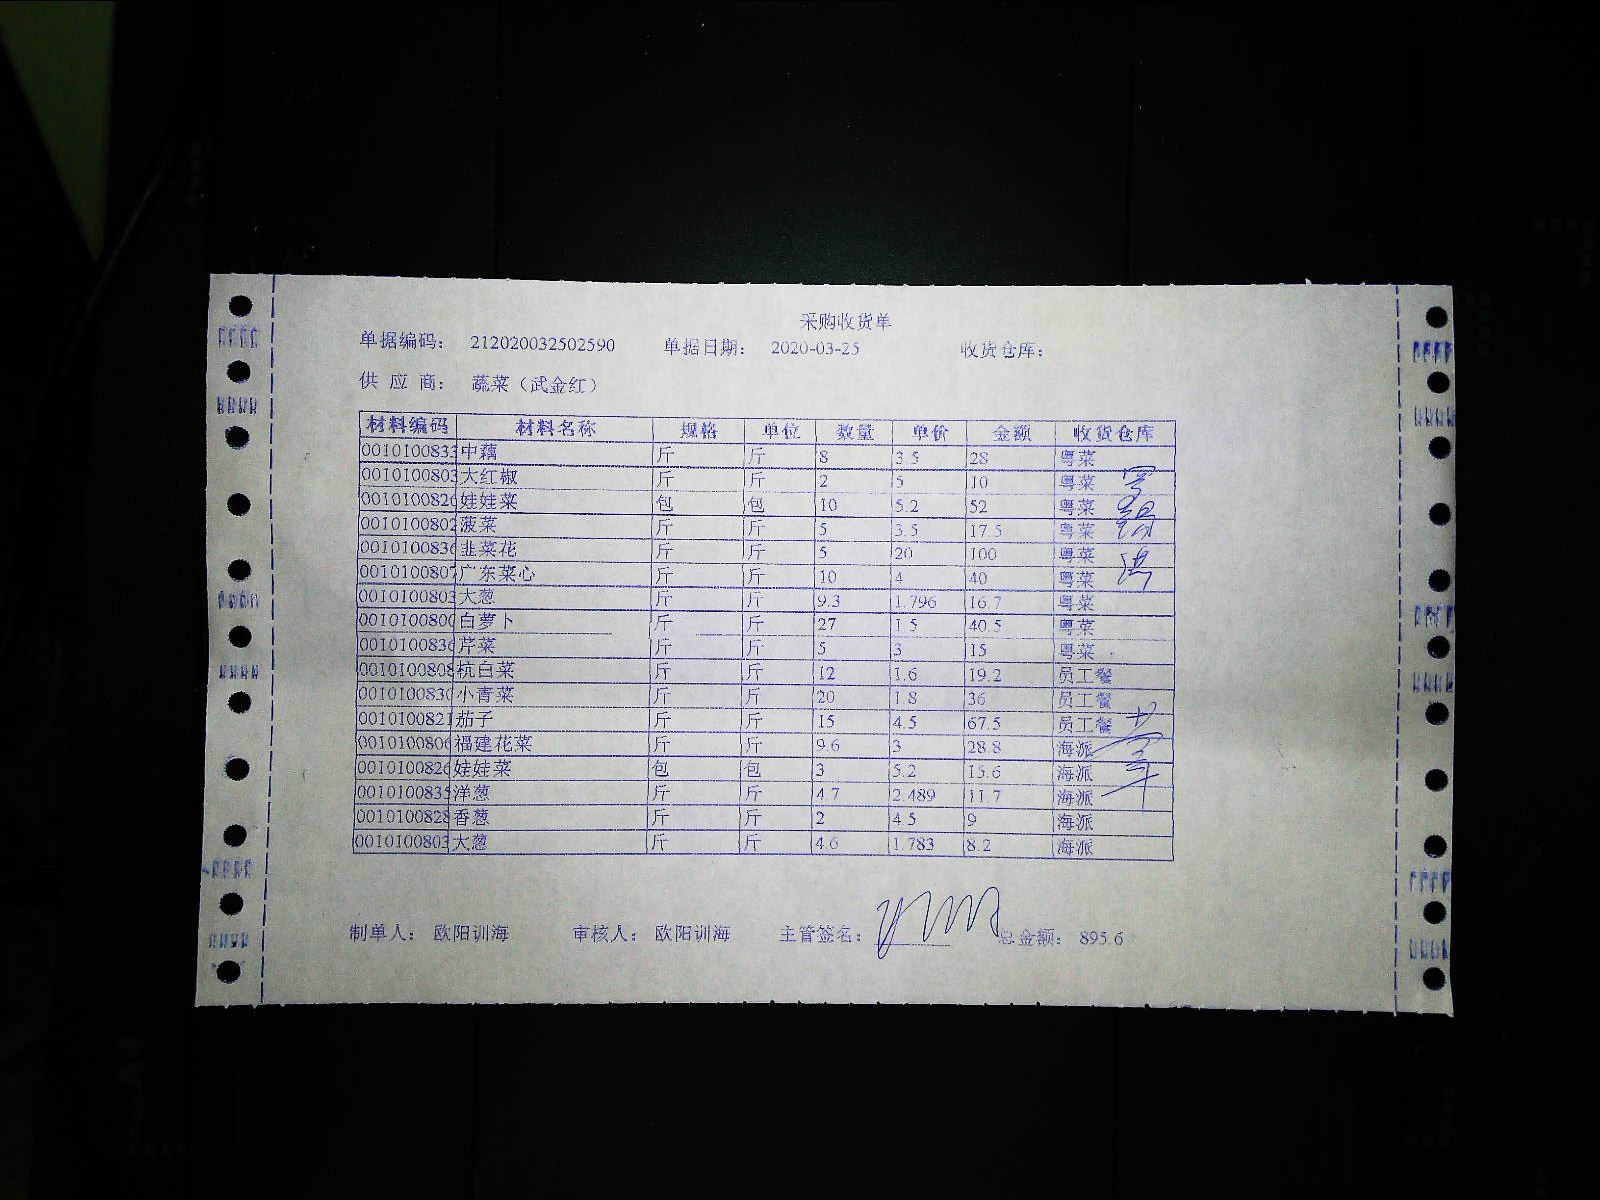 采购收货单
单据编码： 212020032502590 单据日期： 2020-03-25 收货仓库：
供 应 商： 蔬菜（武金红）
材料编码 材料名称 规格 单位 数量 单价 金额 收货仓库
0010100833 中藕 斤 斤 8 3.5 28 粤菜
0010100803 大红椒 斤 斤 2 5 10 粤菜
001010082 娃娃菜 包 包 10 5.2 52 粤菜
0010100802 菠菜 斤 斤 5 3.5 17.5 粤菜
001010083 韭菜花 斤 斤 5 20 100 粤菜
0010100807 广东菜心 斤 斤 10 4 40 粤菜
0010100803 大葱 斤 斤 9.3 1.796 16.7 粤菜
001010080 白萝卜 斤 斤 27 1.5 40.5 粤菜
001010083 芹菜 斤 斤 5 3 15 粤菜
0010100808 杭白菜 斤 斤 12 1.6 19.2 员工餐
001010083 小青菜 斤 斤 20 1.8 36 员工餐
0010100821 茄子 斤 斤 15 4.5 67.5 员工餐
001010080 福建花菜 斤 斤 9.6 3 28.8 海派
001010082 娃娃菜 包 包 3 5.2 15.6 海派
0010100835 洋葱 斤 斤 4.7 2.489 11.7 海派
0010100828 香葱 斤 斤 2 4.5 9 海派
0010100803 大葱 斤 斤 4.6 1.783 8.2 海派
制单人： 欧阳训海 审核人： 欧阳训海 主管签名： 总金额： 895.6